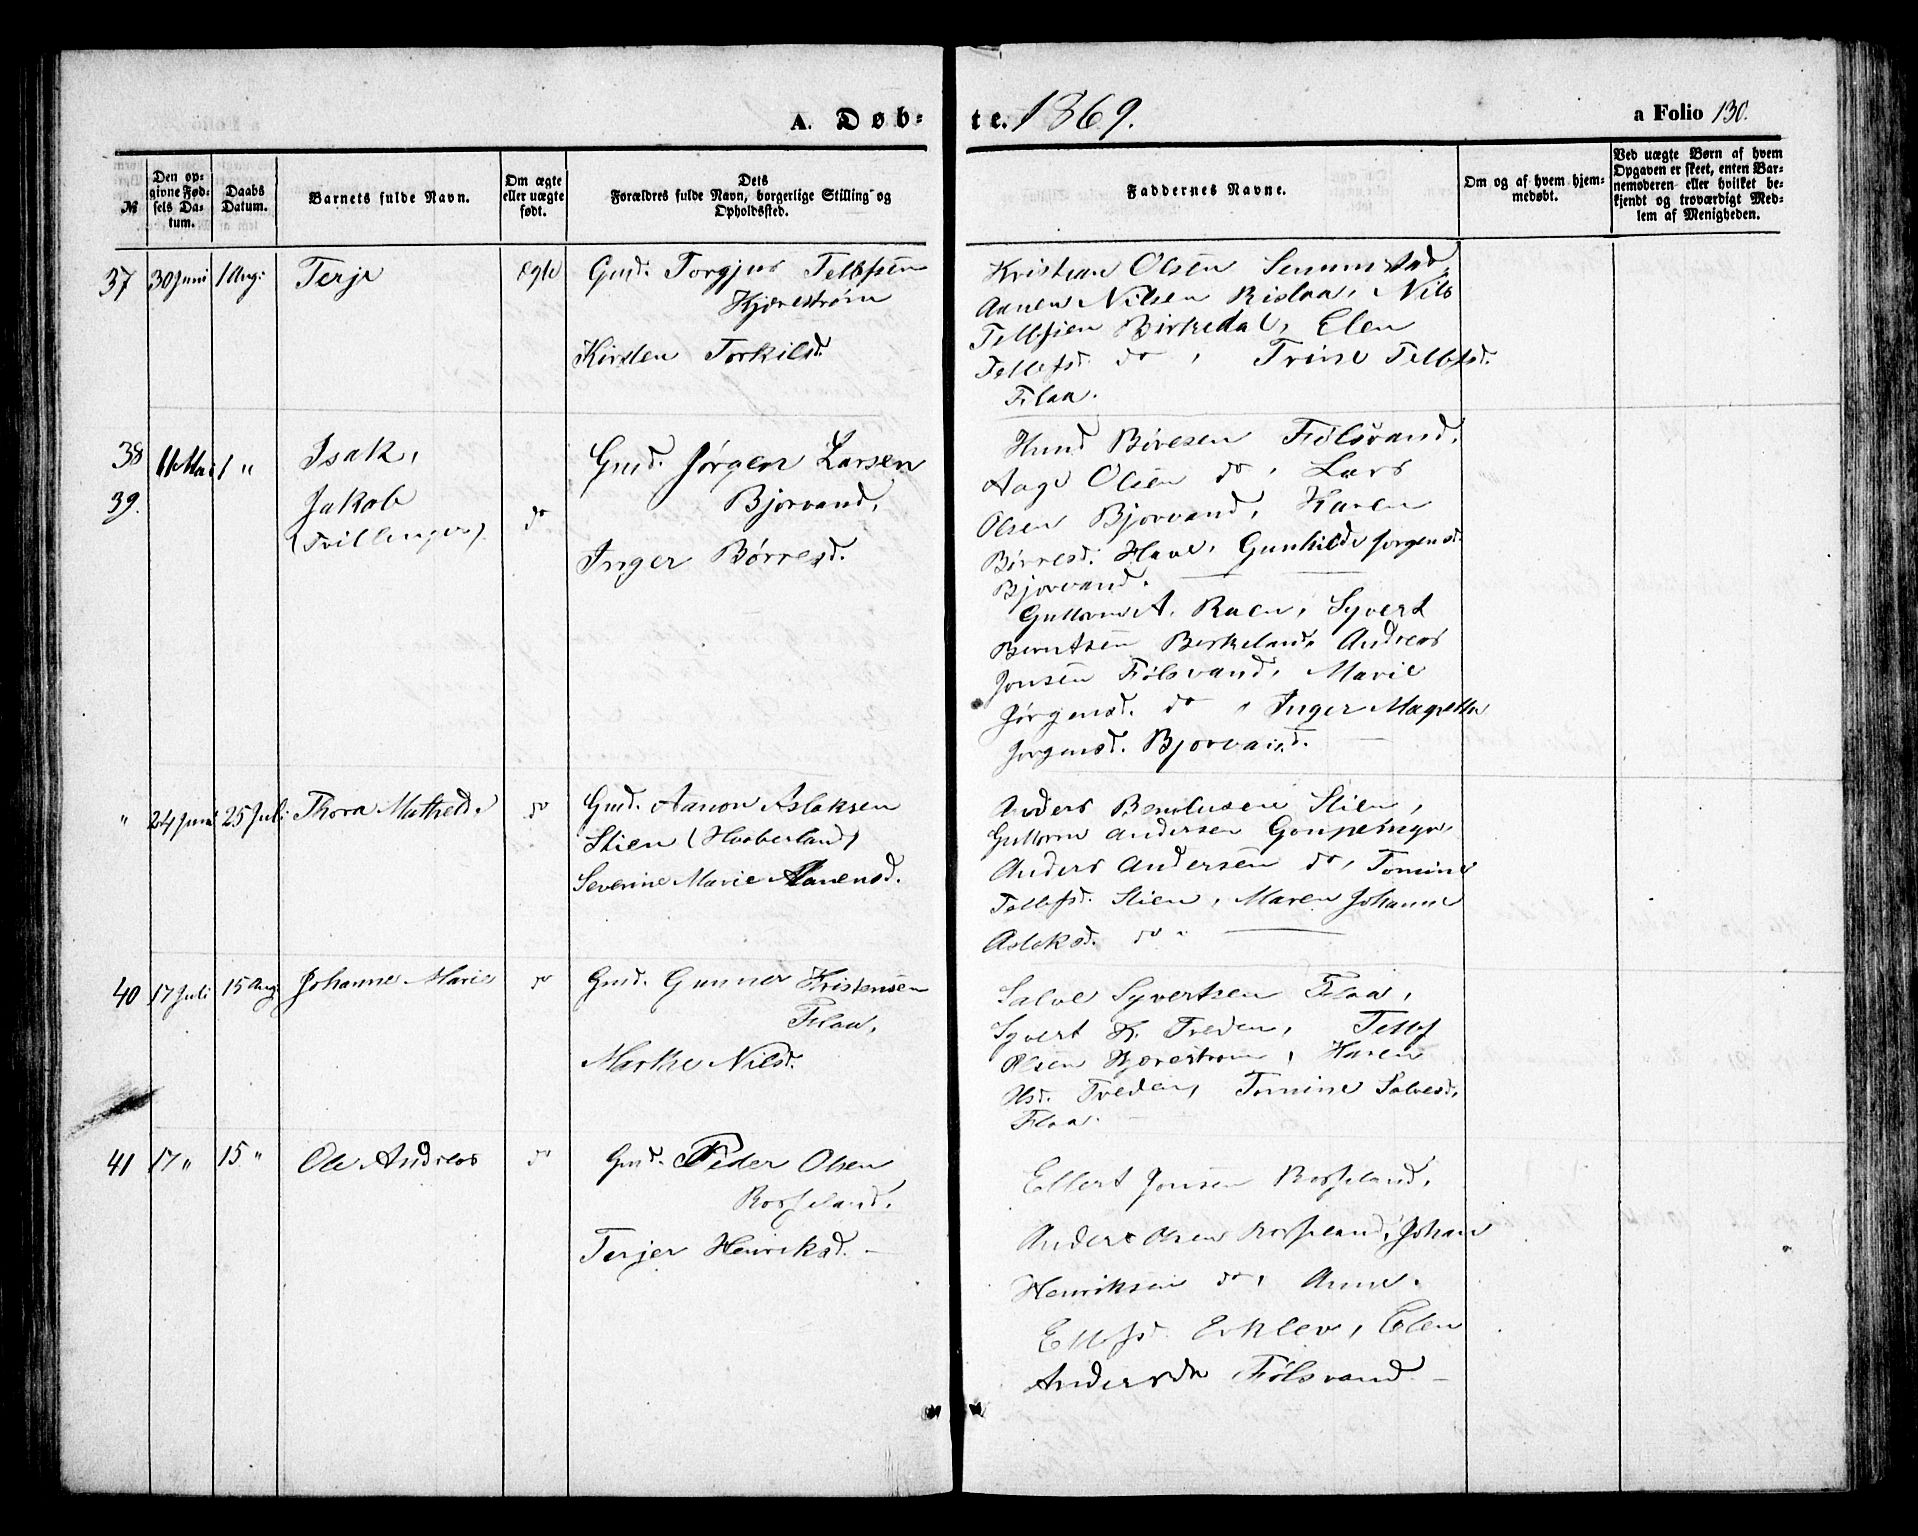 A. Døb-
te. 1869.
a Folio 130.
№
Den op-
givne Fød-
sels Da-
tum.
Daabs
Datum.
Barnets fulde Navn.
Om ægte
eller uægte
født.
Dets
Forældres fulde Navn, borgerlige Stilling og
Opholdssted.
Faddernes Navne.
Om og af hvem hjem-
medøbt.
Ved uægte Børn af hvem
Opgaven er skeet, enten Bar-
nemoderen eller hvilket be-
kjendt og troværdigt Med-
lem af Menigheden.
37 30 Juni 1 Aug: Terje Ægte Gmd. Torgjus Tellefsen
Hjærestrøm
Kirsten Torkilsd.
Kristian Olsen
Aanen Nilsen Rislaa, Nils
Tellefsen Birkedal, Elen
Tellefsd. do, Trine Tellefsd.
Flaa.
38 11 Mai 1 " Isak,
39. Jakob
(Tvillinger) do
Gmd. Jørgen Larsen
Bjorvand,
Inger Børresd.
Børesen Følsvand,
Aage Olsen do, Lars
Olsen Bjorvand, Karen
Børresd. Have, Gunhilde Jorgensd.
Bjorvand.
Guttorm A. Raen, Syvert
Berntsen Berkeland, Andreas
Jonsen Følsvand, Marie
Jørgensd. do, Inger Magrethe
Jorgensd. Bjorvand.
" 24 Juni 25 Juli Thora Mathild. do Gmd. Aanon Aslaksen
Stien (Haaberland)
Severine Marie Aanensd.
Anders Stien,
Guttorm Andersen
Anders Andersen do, Tomine
Tellefsd. Stien, Maren Johanne
Aslaksd. do.
40 17 Juli 15 Aug. Johanne Marie do Gmd. Gunner Kristensen
Flaa,
Marthe Nilsd.
Salve Syvertsen Flaa,
Syvert K. Treden, Tellef
Olsen Hjærestrøm, Karen
Tveden, Tomine Salvesd.
Flaa.
41 17 " 15 " Ole Andreas do Gmd. Peder Olsen
Rosseland,
Terjer Henriksd.
Ellert Jonsen Rosseland,
Anders Olsen Rosseland, Johan
Henriksen do, Anne
Ellefsd. Esklev, Elen
Andersdr Følsvand